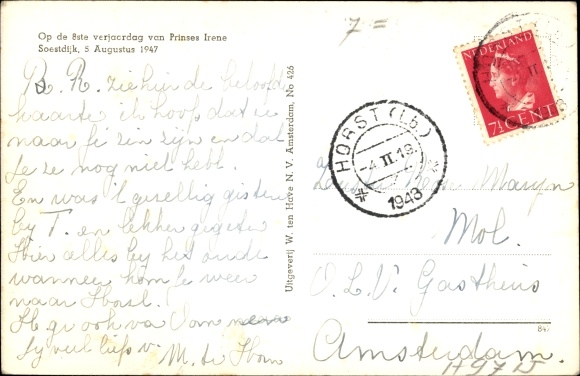 7 =
Op de 8ste verjaardag van Prinses Irene
Soestdijk, 5 Augustus 1947
NEDERLAND
7½ CENT
B. R. ziehier de beloofde
kaarte ik hoop dat ie
naar je zin zijn en dat
Je ze nog niet hebt.
En was 't gezellig gisteren
by T. en lekker gegeten
Hier alles by het oude
wanneer kom je weer
naar Horst.
He gr ook va Oom
Zy veel liefs v.
M. te Horn
Uitgeverij W. ten Have N. V. Amsterdam, No 426
HORST (Lb.)
-4 II 19
1948
Zuster Maryn
Mol.
O. L. V. Gasthuis
847
Amsterdam.
H 97 15